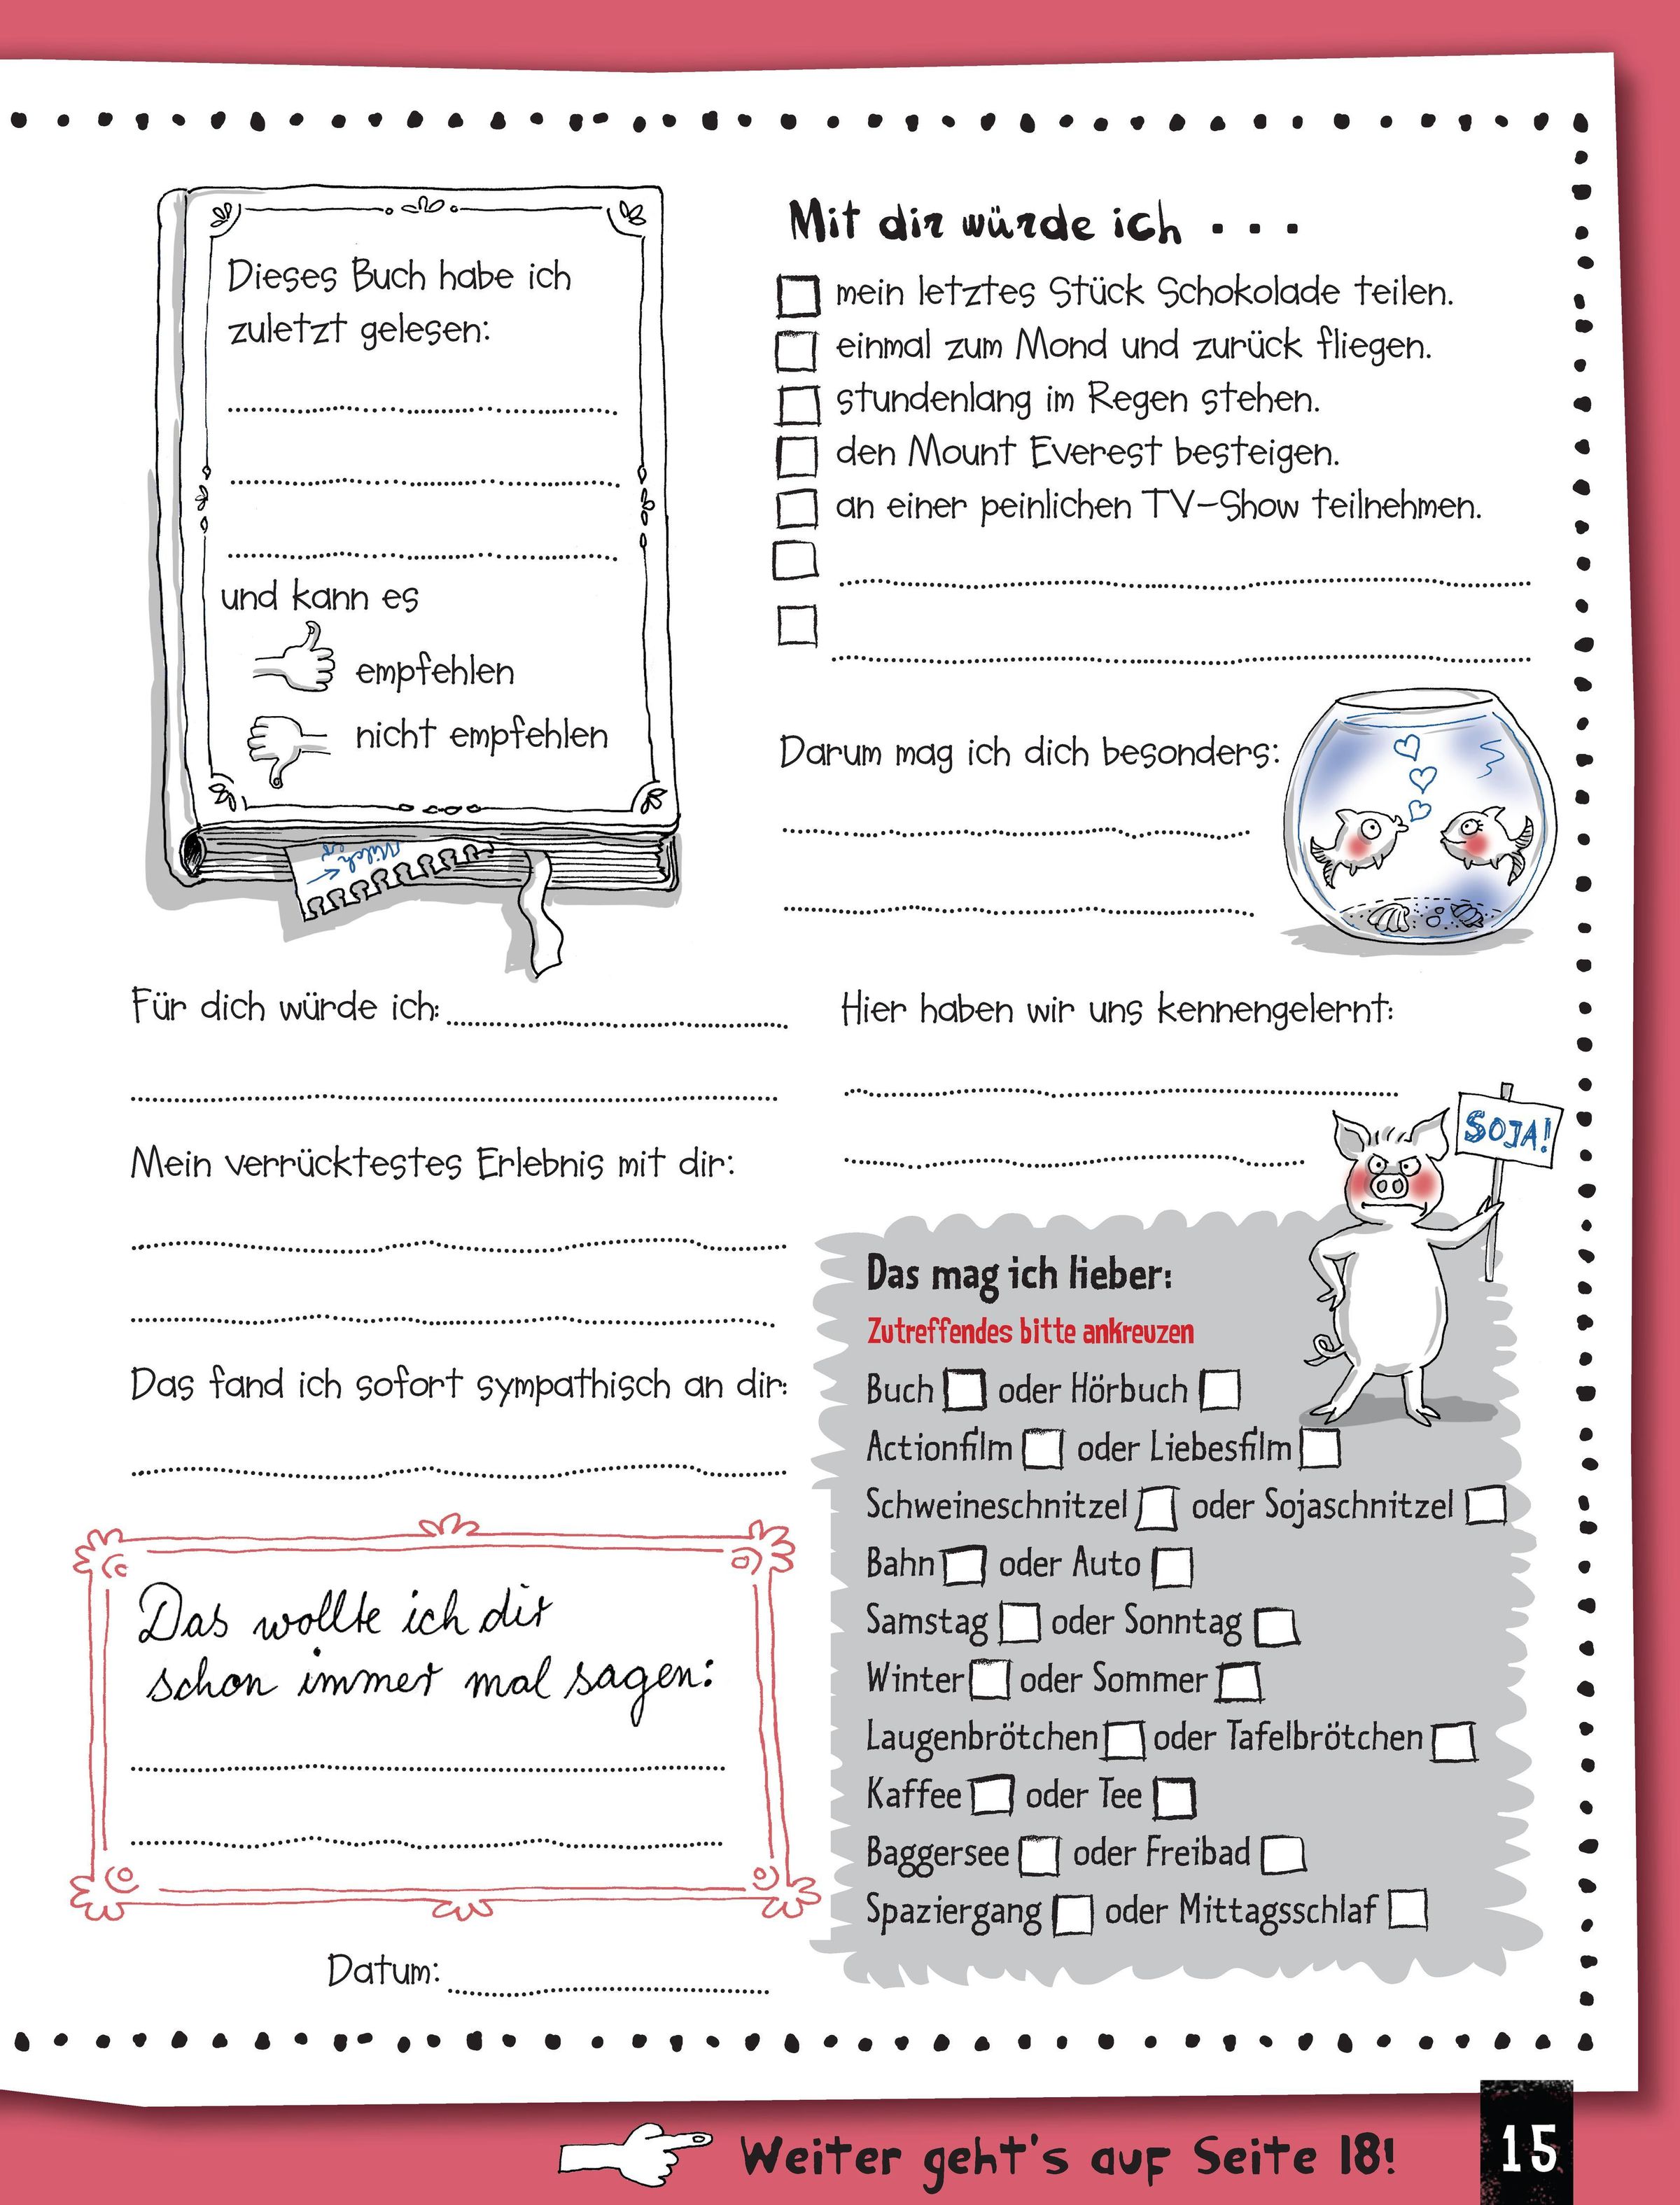 Dieses Buch habe ich
zuletzt gelesen:
und kann es
empfehlen
nicht empfehlen
Milch
Mit dir würde ich . . .
mein letztes Stück Schokolade teilen.
einmal zum Mond und zurück fliegen.
stundenlang im Regen stehen.
den Mount Everest besteigen.
an einer peinlichen TV-Show teilnehmen.
Darum mag ich dich besonders:
Für dich würde ich:
Mein verrücktestes Erlebnis mit dir:
Das fand ich sofort sympathisch an dir:
Das wollte ich dir
schon immer mal sagen:
Datum:
Hier haben wir uns kennengelernt:
SOJA!
Das mag ich lieber:
Zutreffendes bitte ankreuzen
Buch oder Hörbuch
Actionfilm oder Liebesfilm
Schweineschnitzel oder Sojaschnitzel
Bahn oder Auto
Samstag oder Sonntag
Winter oder Sommer
Laugenbrötchen oder Tafelbrötchen
Kaffee oder Tee
Baggersee oder Freibad
Spaziergang oder Mittagsschlaf
Weiter geht's auf Seite 18!
15